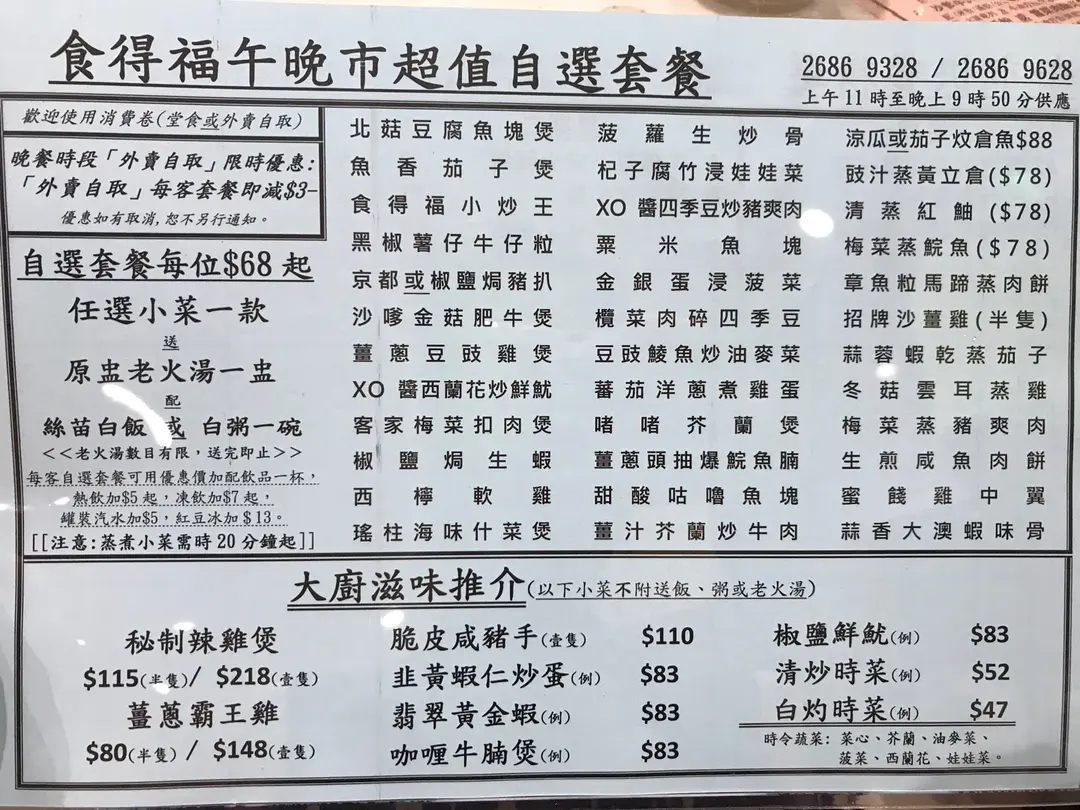 食得福午晚市超值自選套餐
2686 9328 / 2686 9628
上午11時至晚上9時50分供應
歡迎使用消費卷(堂食或外賣自取)
晚餐時段「外賣自取」限時優惠:
「外賣自取」每客套餐即減$3-
優惠如有取消,恕不另行通知。
自選套餐每位$68起
任選小菜一款
送
原盅老火湯一盅
配
絲苗白飯 或 白粥一碗
<<老火湯數目有限，送完即止>>
每客自選套餐可用優惠價加配飲品一杯，
熱飲加$5起，凍飲加$7起，
罐裝汽水加$5，紅豆冰加$13。
[[注意:蒸煮小菜需時20分鐘起]]
北菇豆腐魚塊煲
魚香茄子煲
食得福小炒王
黑椒薯仔牛仔粒
京都或椒鹽焗豬扒
沙嗲金菇肥牛煲
薑蔥豆豉雞煲
XO醬西蘭花炒鮮魷
客家梅菜扣肉煲
椒鹽焗生蝦
西檸軟雞
瑤柱海味什菜煲
菠蘿生炒骨
杞子腐竹浸娃娃菜
XO醬四季豆炒豬爽肉
粟米魚塊
金銀蛋浸菠菜
欖菜肉碎四季豆
豆豉鯪魚炒油麥菜
蕃茄洋蔥煮雞蛋
啫啫芥蘭煲
薑蔥頭抽爆鯇魚腩
甜酸咕嚕魚塊
薑汁芥蘭炒牛肉
涼瓜或茄子炆倉魚$88
豉汁蒸黃立倉($78)
清蒸紅鮋($78)
梅菜蒸鯇魚($78)
章魚粒馬蹄蒸肉餅
招牌沙薑雞(半隻)
蒜蓉蝦乾蒸茄子
冬菇雲耳蒸雞
梅菜蒸豬爽肉
生煎咸魚肉餅
蜜餞雞中翼
蒜香大澳蝦味骨
大廚滋味推介(以下小菜不附送飯、粥或老火湯)
秘制辣雞煲
$115(半隻)/ $218(壹隻)
薑蔥霸王雞
$80(半隻) / $148(壹隻)
脆皮咸豬手(壹隻) $110
韭黃蝦仁炒蛋(例) $83
翡翠黃金蝦(例) $83
咖喱牛腩煲(例) $83
椒鹽鮮魷(例) $83
清炒時菜(例) $52
白灼時菜(例) $47
時令蔬菜: 菜心、芥蘭、油麥菜、
菠菜、西蘭花、娃娃菜。